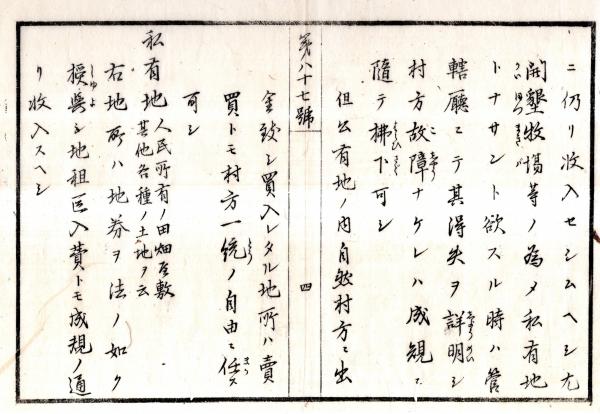 ニ仍リ收入セシムヘシ尤
開墾牧場等ノ為メ私有地
トナサント欲スル時ハ管
轄廳ニテ其得失ヲ詳明シ
村方故障ナケレハ成規ニ
隨テ拂下可シ
但公有地ノ内自然村方ニ出
第八十七號 四
金致シ買入レタル地所ハ賣
買トモ村方一統ノ自由ニ任ス
可シ
私有地 人民所有ノ田畑屋敷
其他各種ノ土地ヲ云
右地所ハ地券ヲ法ノ如ク
授與シ地租區入費トモ成規ノ通
リ收入スヘシ